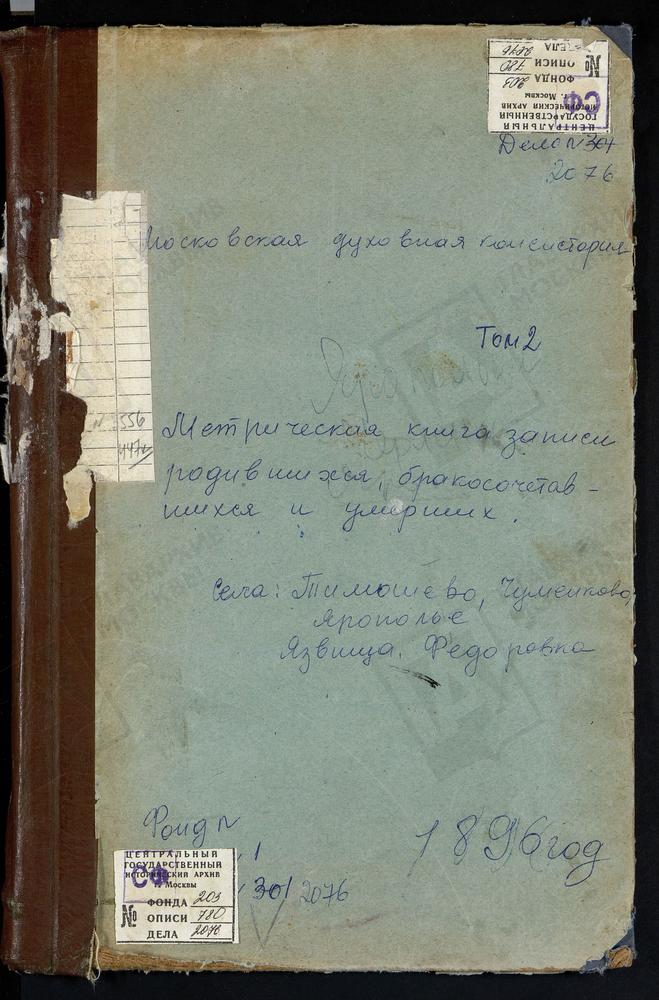 ЦЕНТРАЛЬНЫЙ
ГОСУДАРСТВЕННЫЙ
ИСТОРИЧЕСКИЙ АРХИВ
г. Москвы
СФ
ФОНДА 203
№ ОПИСИ 780
ДЕЛА 2076
Дело N 301
2076
Московская духовная консистория
Том 2
Ярополье
N 3556
Метрическая книга записи
родившихся, бракосочетав-
шихся и умерших.
Села: Тимошево, Чумеиково,
Ярополье
Язвища. Федоровка
Фонд N
1
1896 год
301 2076
ЦЕНТРАЛЬНЫЙ
ГОСУДАРСТВЕННЫЙ
ИСТОРИЧЕСКИЙ АРХИВ
г. Москвы
СФ
ФОНДА 203
№ ОПИСИ 780
ДЕЛА 2076